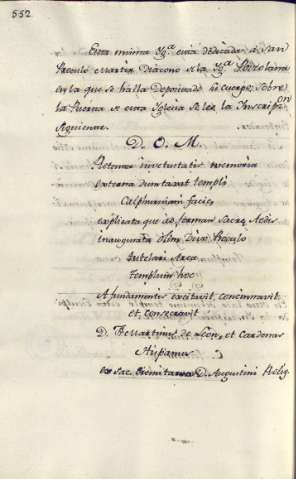 552
Esta misma Yg.ª está dedicada á San
Proculo Martir Diacono de la Yg.ª Puzolana
en la que se halla Depositado su cuerpo; sobre
la Puerta de esta Yglesia se lee la Inscripc.on
siguiente.
D. O. M.
Retenta inventutatis memoria
externa dumtaxat templi
Calphurniani facies
explicata que ad formam Sacræ Aedis
inaugurata olim Divo Proculo
tutelari Area
Templum hoc
A fundamentis excitavit, concameravit
et, consecravit
D. F. Martinus de Leon, et Cardenas
Hispanus
ex Sac. Eremitarum D. Augustini Relig.